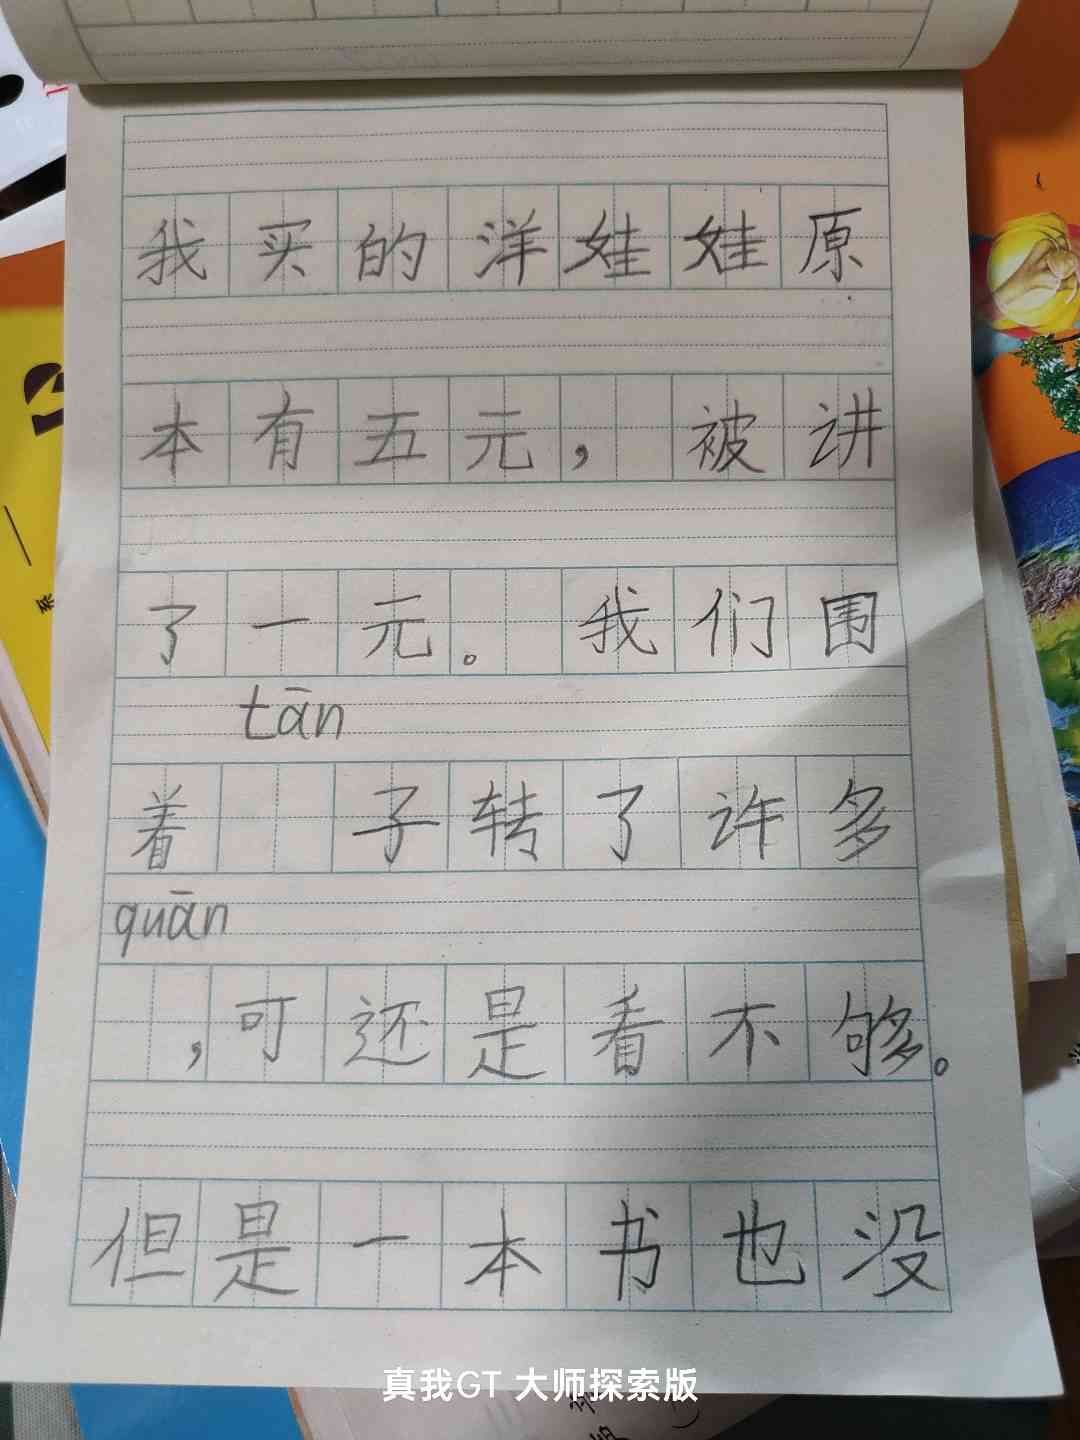 我买的洋娃娃原
本有五元，被讲
了一元。我们围
tān
着 子转了许多
quān
，可还是看不够。
但是一本书也没
真我GT 大师探索版